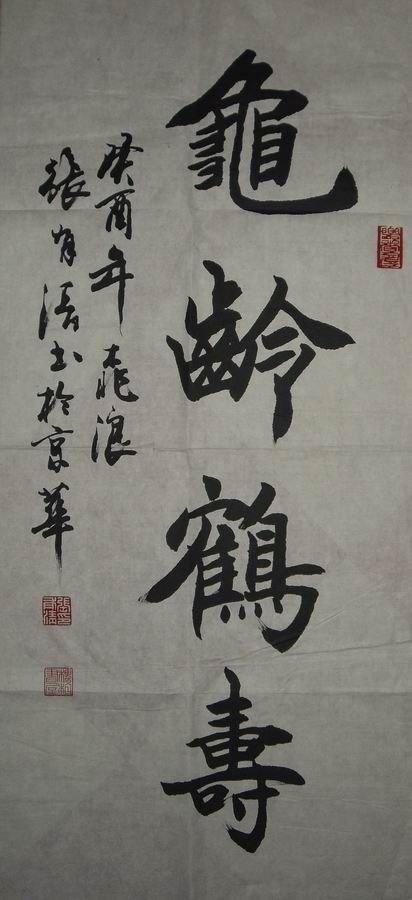 龜齡鶴壽
癸酉年桃浪
張有清書於京華